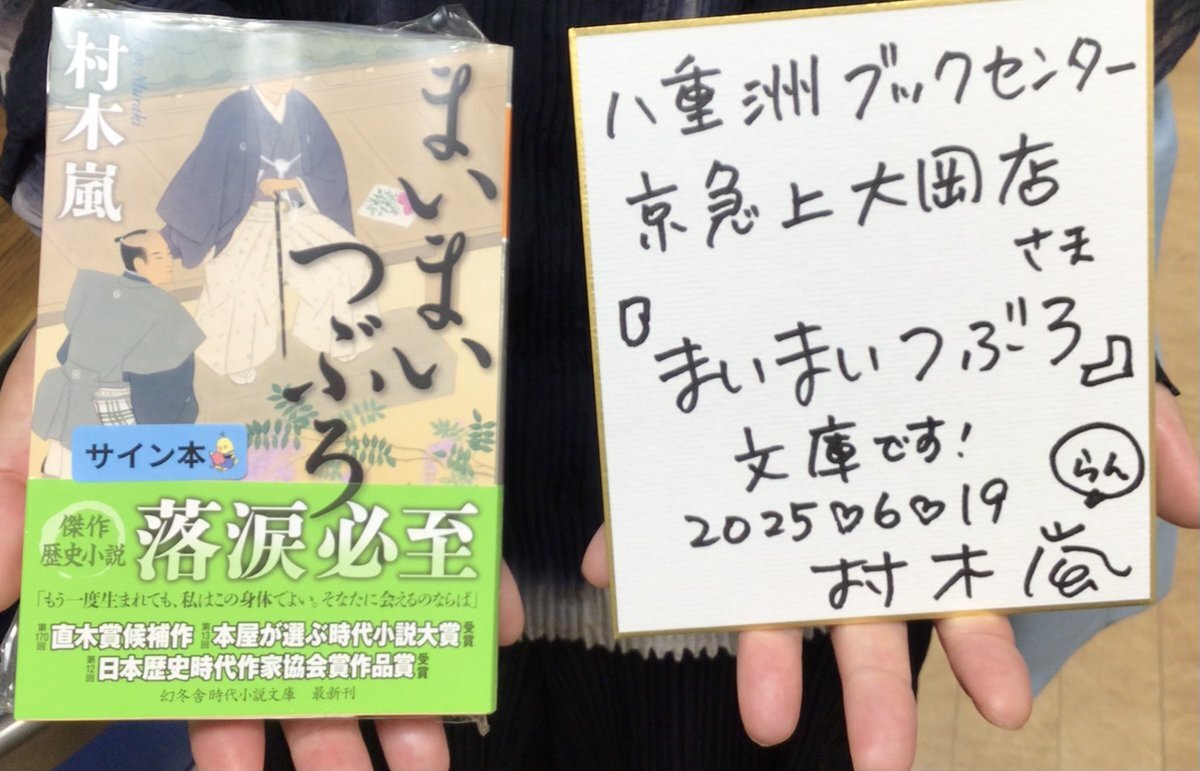 村木嵐
Ran Muraki
まいまい
つぶろ
サイン本
傑作
歴史小説
落涙必至
「もう一度生まれても、私はこの身体でよい。そなたに会えるのならば」
第170回 直木賞候補作 第13回 本屋が選ぶ時代小説大賞 受賞
第12回 日本歴史時代作家協会賞作品賞 受賞
幻冬舎時代小説文庫 最新刊
八重洲ブックセンター
京急上大岡店
さま
『まいまいつぶろ』
文庫です!
らん
2025♡6♡19
村木嵐